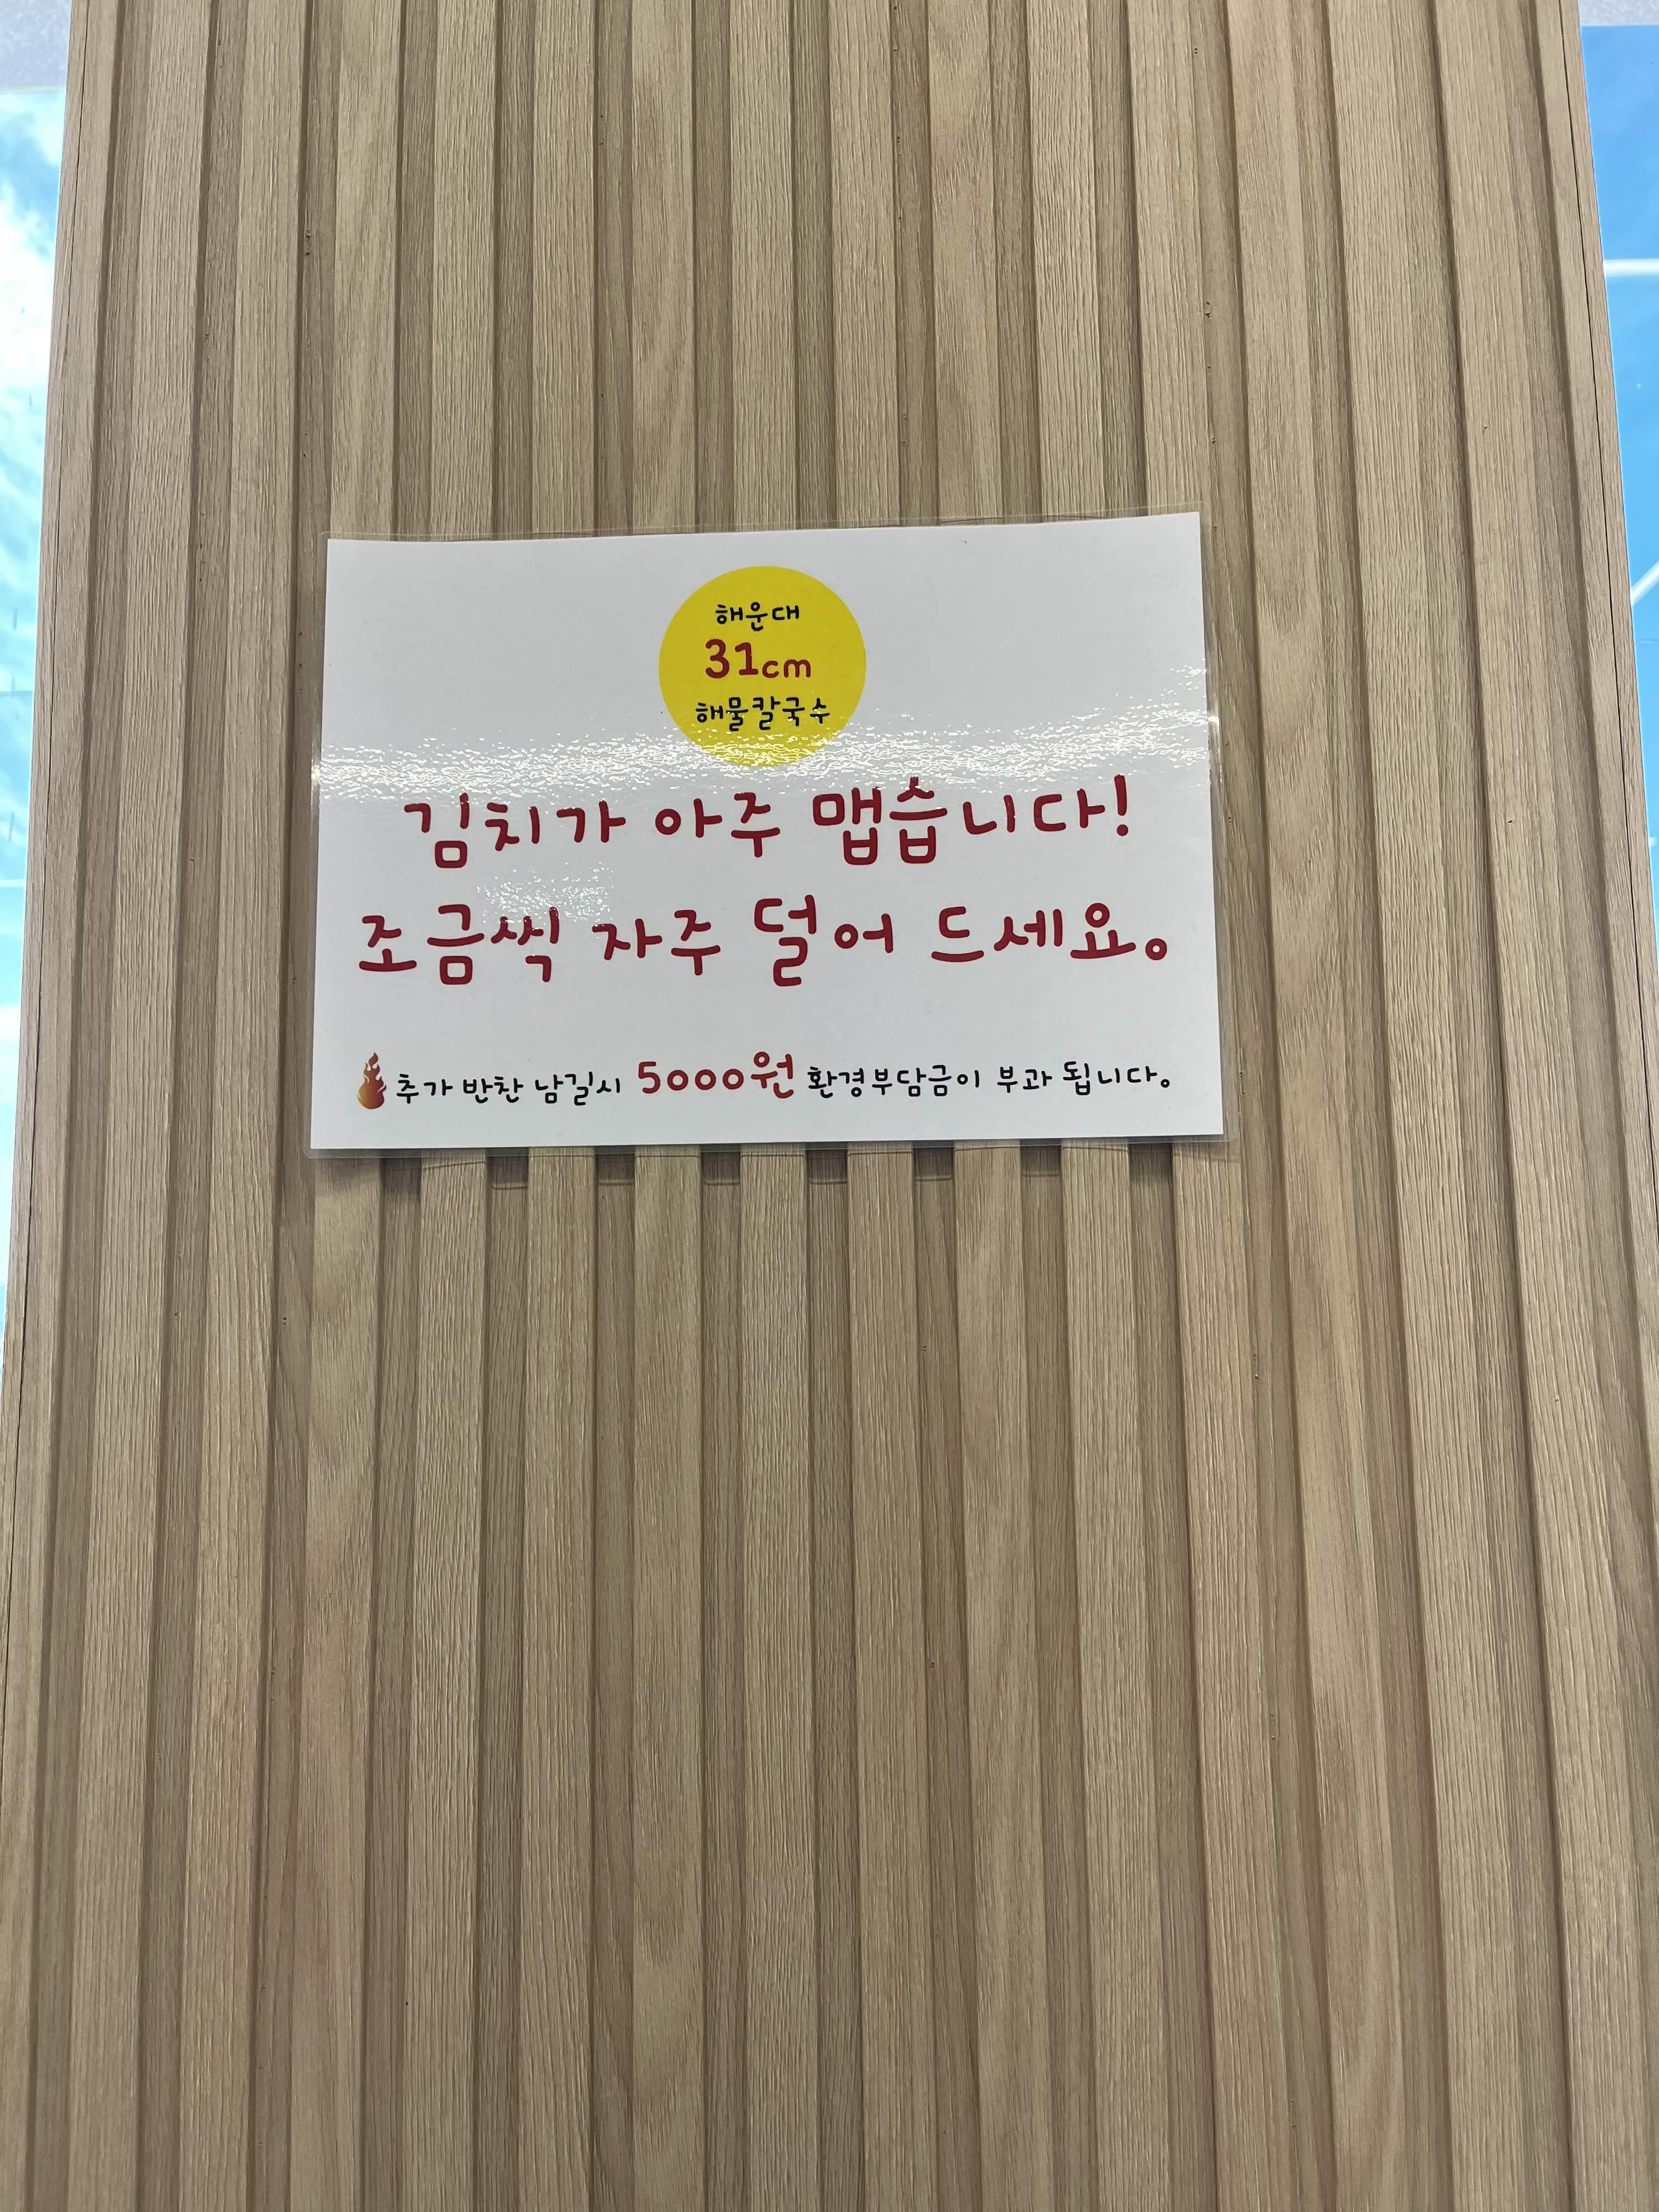 해운대
31cm
해물칼국수
김치가 아주 맵습니다!
조금씩 자주 덜어 드세요。
추가 반찬 남길시 5000원 환경부담금이 부과 됩니다。